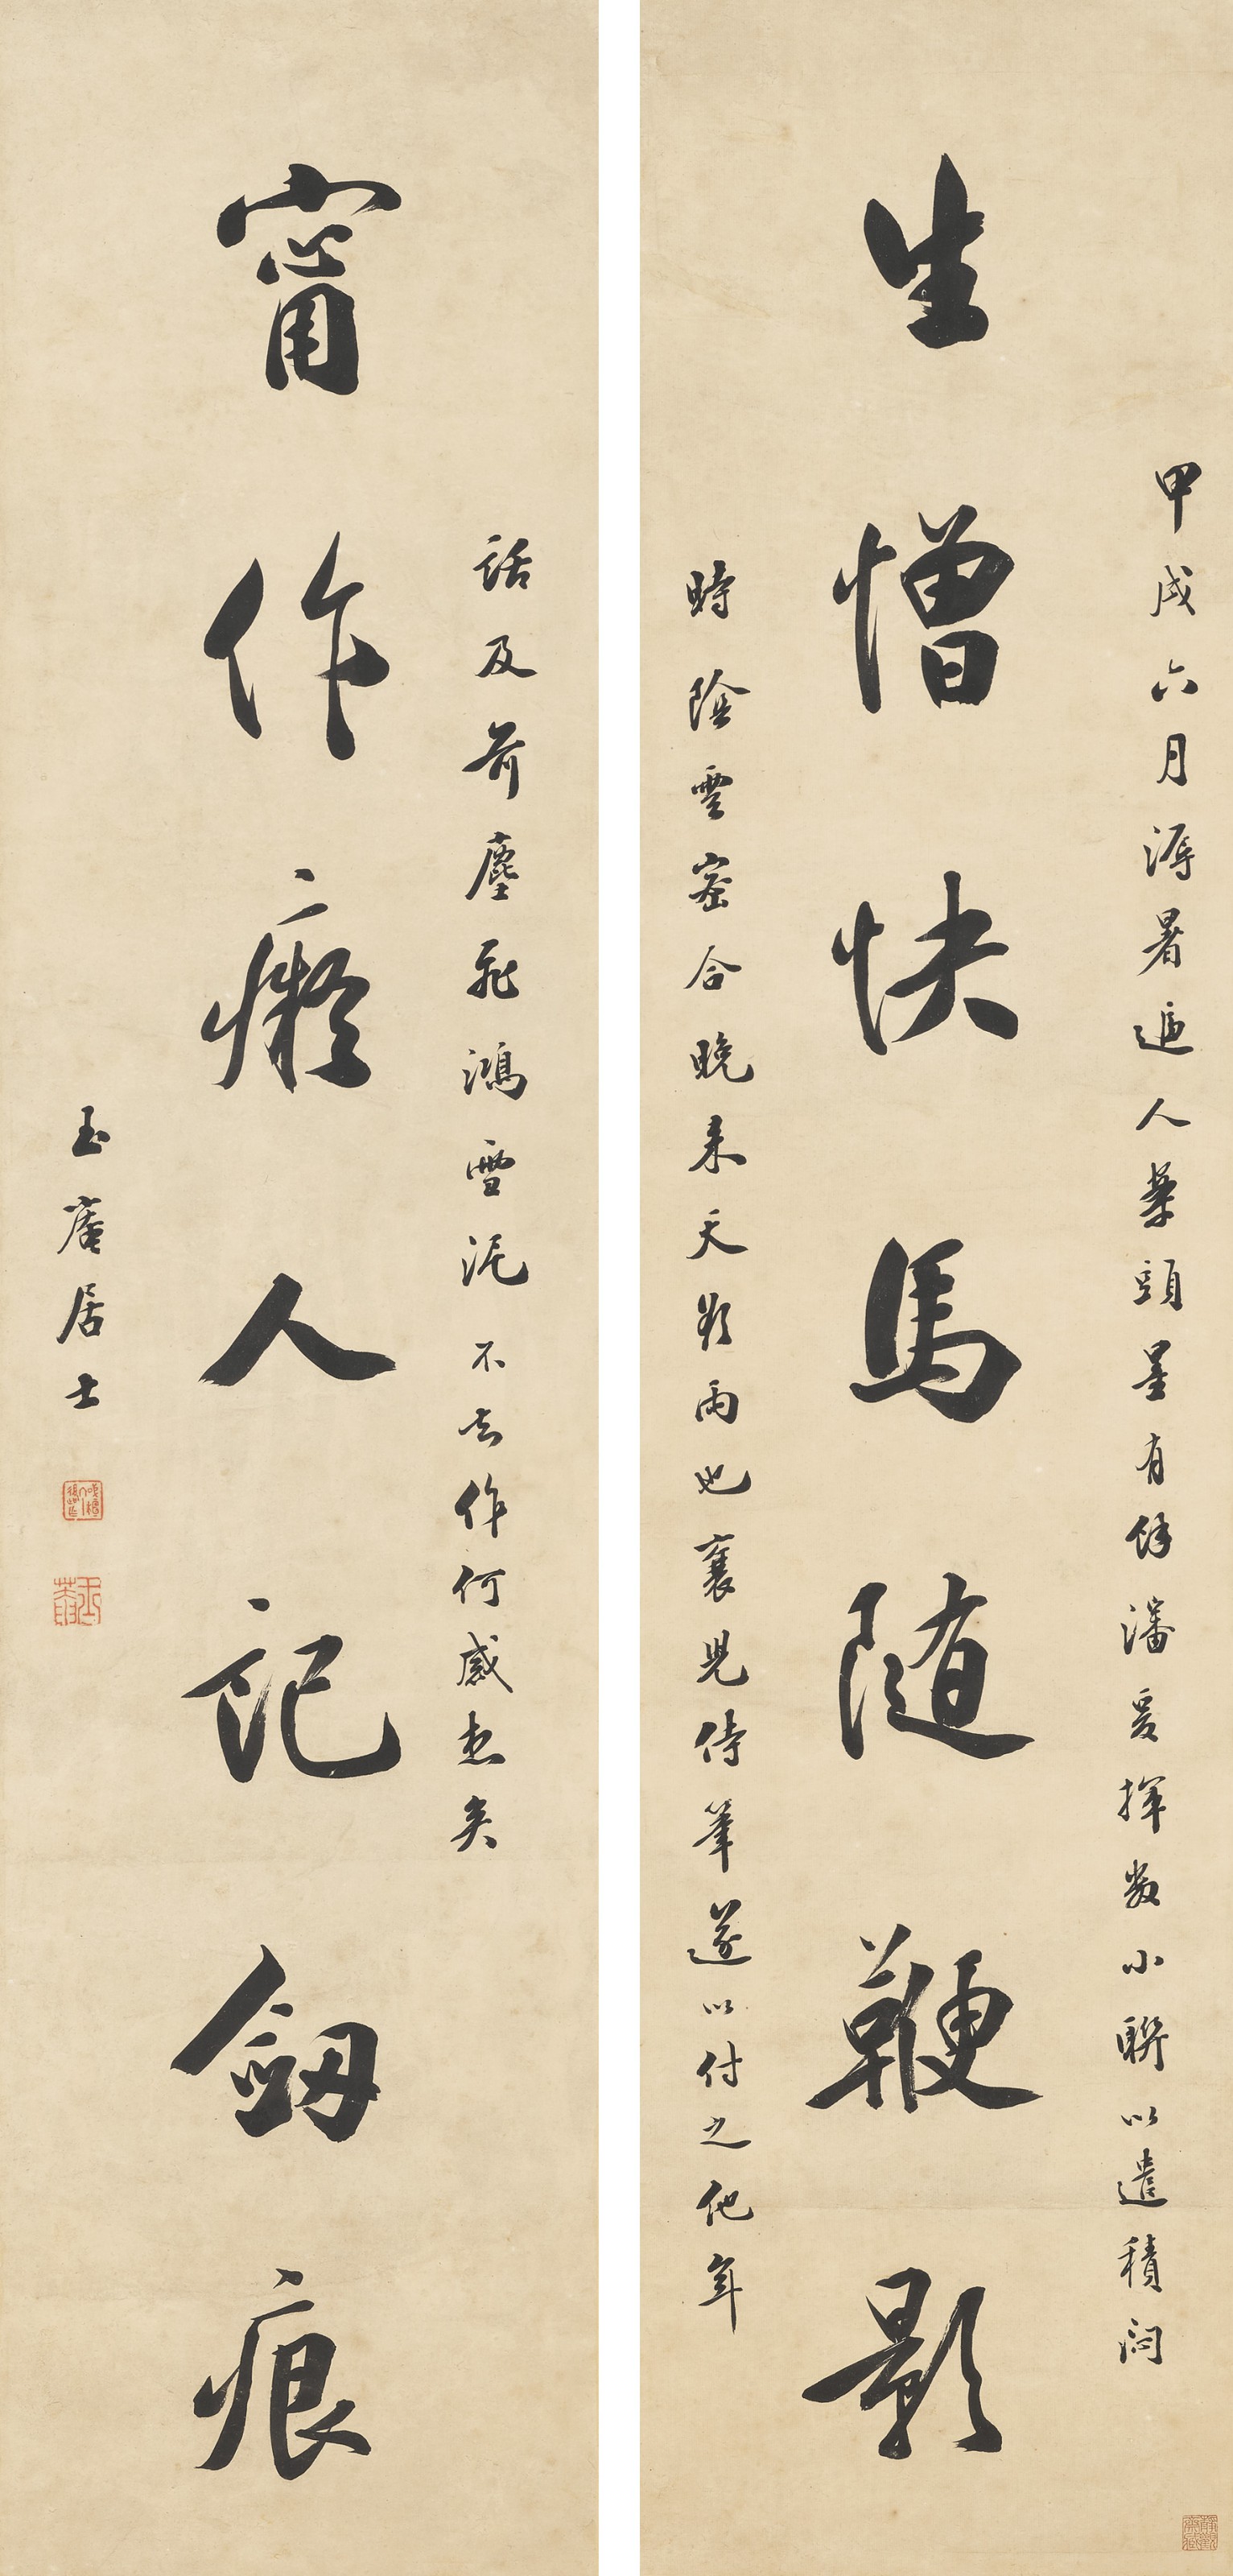 甲戌六月溽暑逼人藥頭墨有餘瀋爰揮數小聯以遣積悶
生憎快馬隨鞭影
時陰雲密合晚來天欲雨也襄兒侍筆遂以付之他年
話及前塵飛鴻雪泥不知作何感想矣
甯作癡人記劔痕
玉菴居士